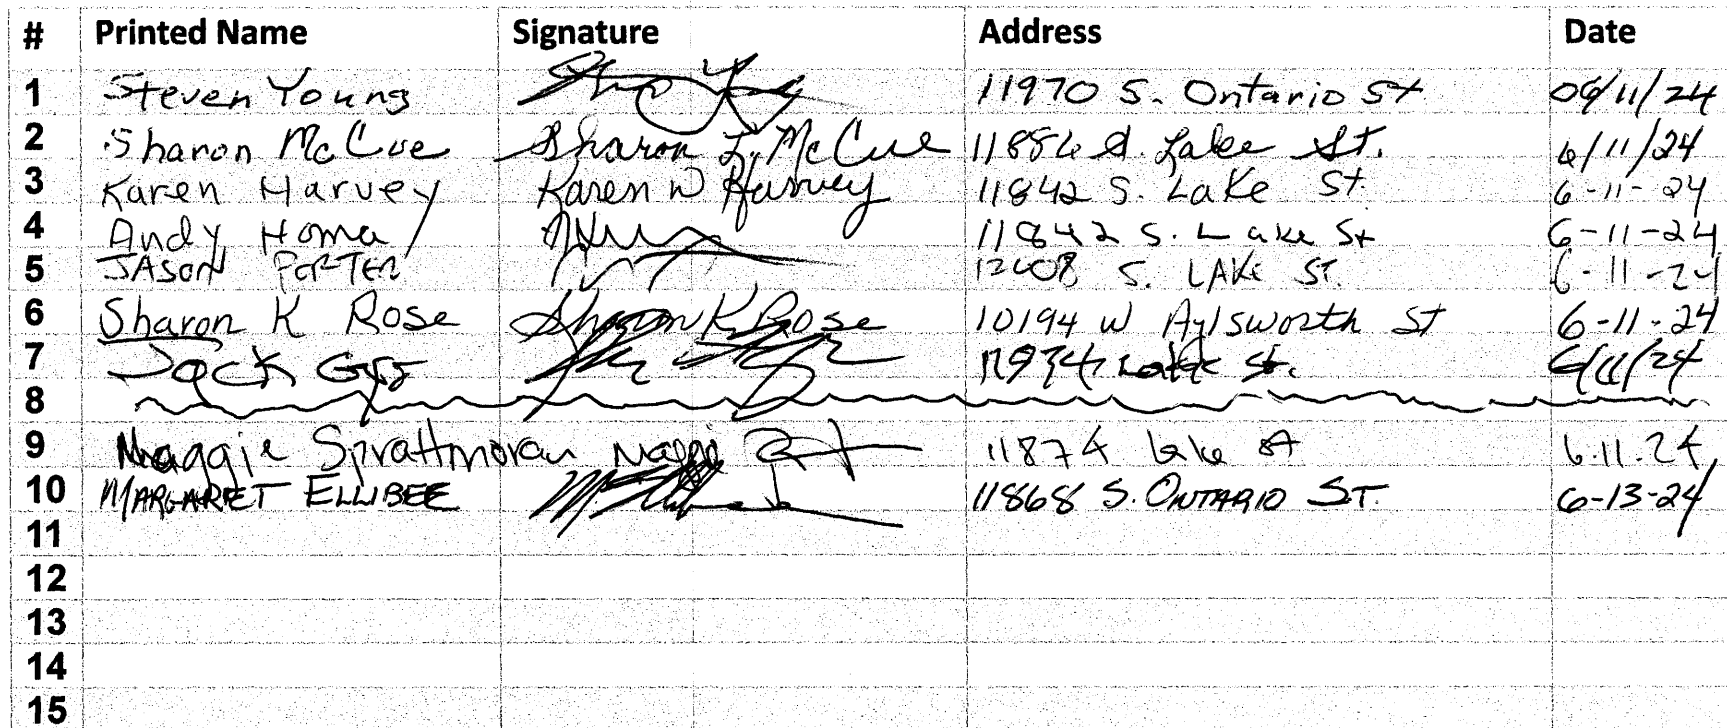 # Printed Name Signature Address Date
1 Steven Young 11970 S. Ontario St 06/11/24
2 Sharon McCue Sharon L. McCue 11886 S. Lake St. 6/11/24
3 Karen Harvey Karen W Harvey 11842 S. Lake St. 6-11-24
4 Andy Homa 11842 S. Lake St 6-11-24
5 JASON PORTER S. LAKE ST. 6-11-24
6 Sharon K Rose Sharon K Rose 10194 W Aylsworth St 6-11-24
7 Jack Lake St. 6/11/24
8
9 Maggie Sprattmoran 11874 Lake St 6.11.24
10 MARGARET ELLIBEE 11868 S. ONTARIO ST. 6-13-24
11
12
13
14
15